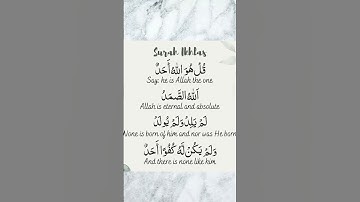 Surah Ikhlas
قُلْ هُوَ اللّٰهُ أَحَدٌ
Say: he is Allah the one
اَللّٰهُ الصَّمَدُ
Allah is eternal and absolute
لَمْ يَلِدْ وَلَمْ يُولَدْ
None is born of him and nor was He born
وَلَمْ يَكُنْ لَّهُ كُفُوًا أَحَدٌ
And there is none like him